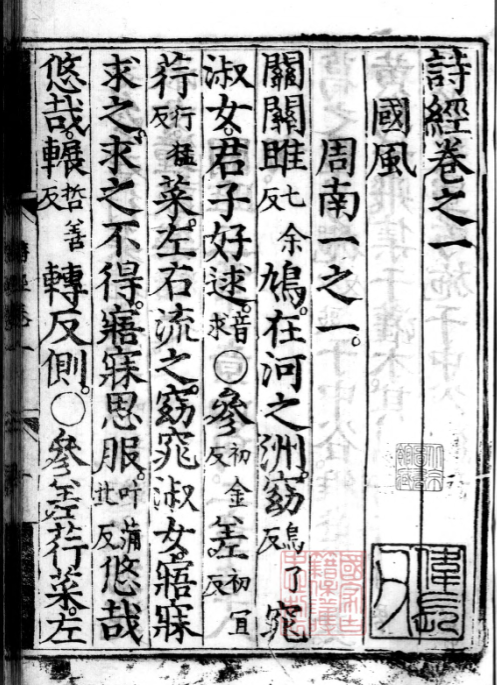 詩經卷之一
國風
周南一之一。
關關雎七余反鳩。在河之洲。窈烏了反窕
淑女。君子好逑。音求○參初金反差初冝反
荇行猛反菜。左右流之。窈窕淑女。寤寐
求之。求之不得。寤寐思服。叶蒲北反悠哉
悠哉。輾哲善反轉反側。○參差荇菜。左